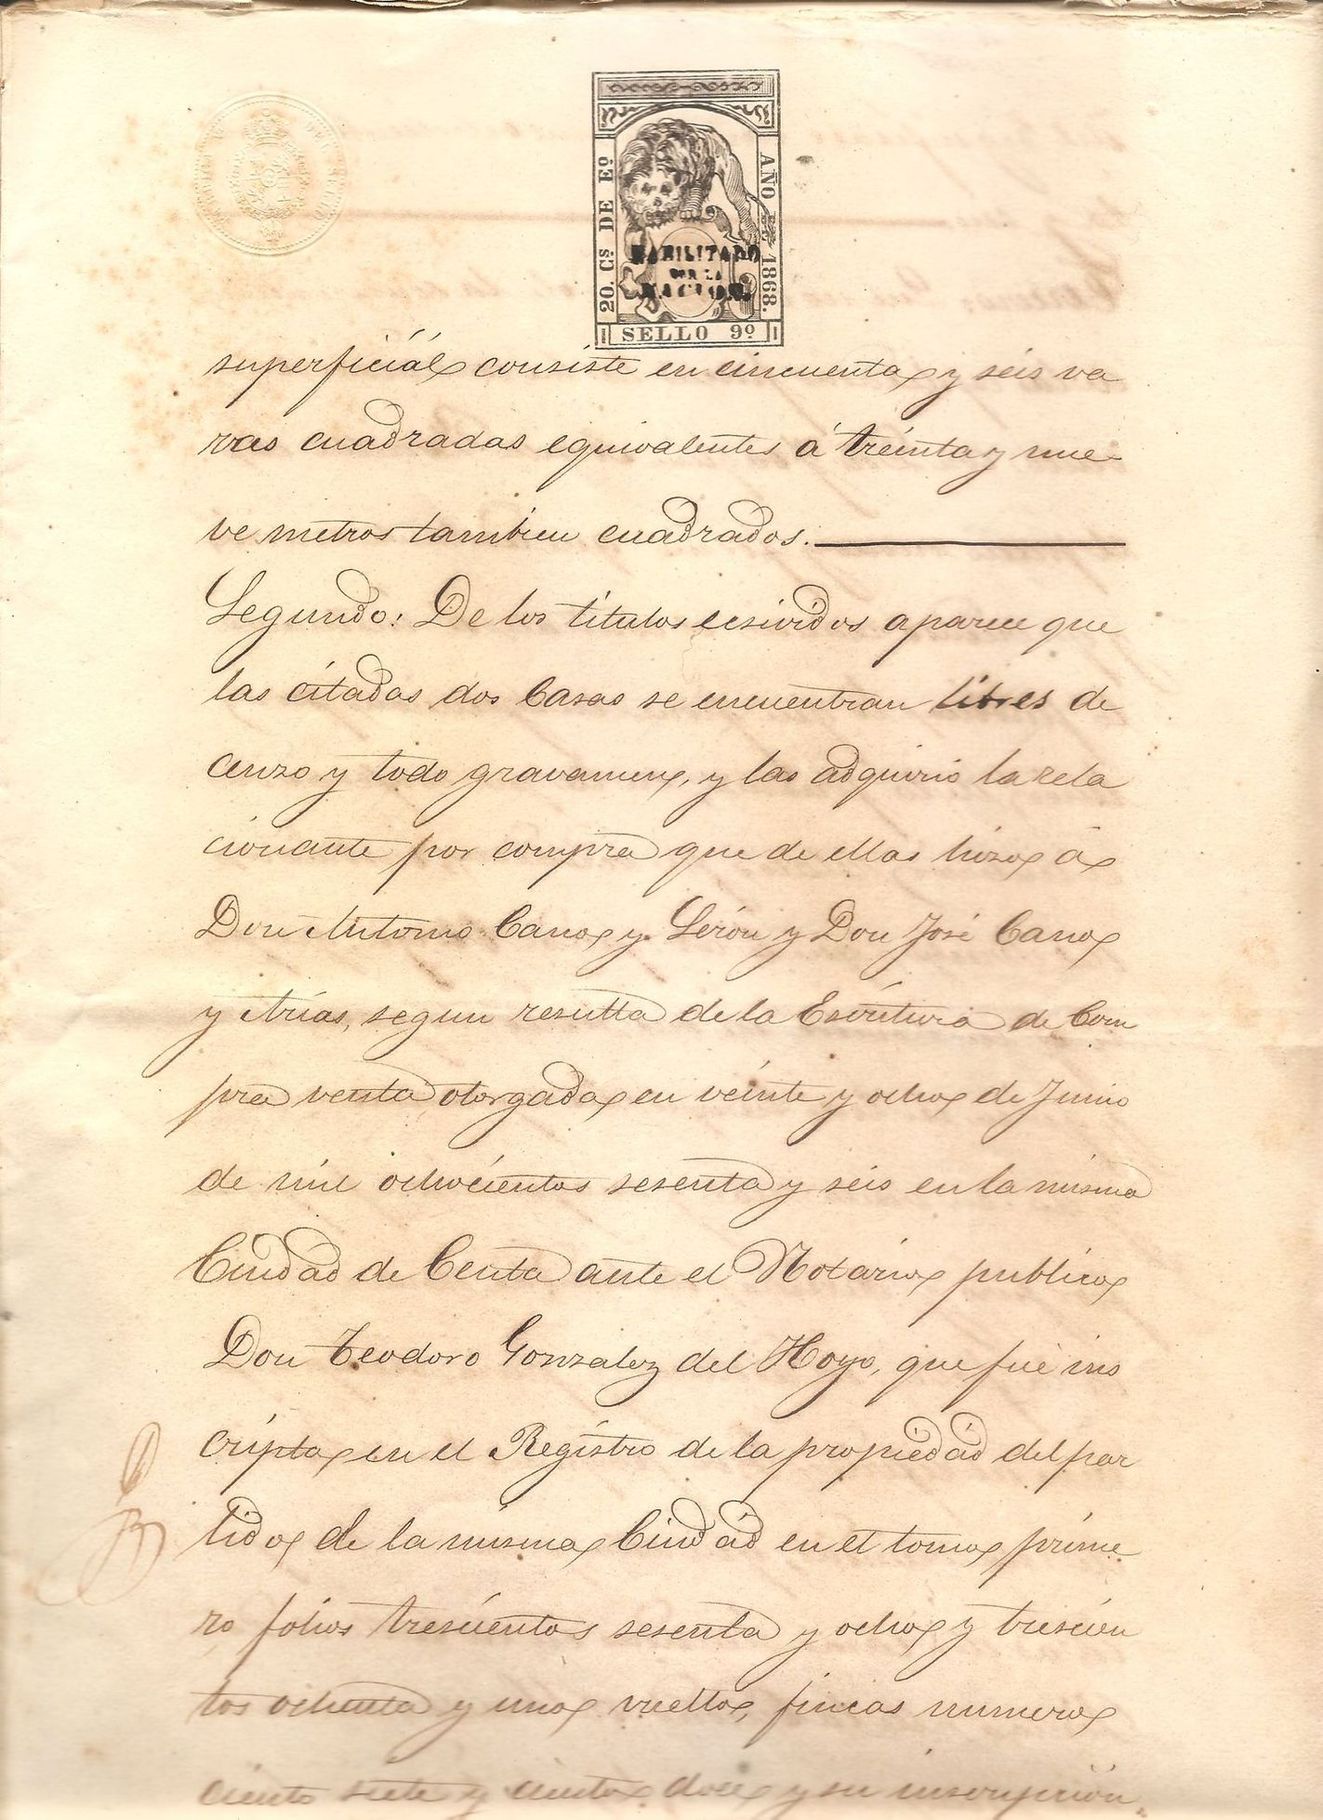 20. Cs DE Eo
AÑO DE 1868.
HABILITADO
POR LA
NACION.
SELLO 9o
superficiál consiste en cincuenta y séis va
ras cuadradas equivalentes á tréinta y nue-
ve metros tambien cuadrados.
Segundo: De los titulos ecsividos aparece que
las citadas dos Casas se encuentran libres de
censo y todo gravamen, y las adquirió la rela
cionante por compra que de ellas hizo á
Don Antonio Cano y Lerón y Don José Cano
y Arias, segun resulta de la Escritura de Com
pra venta otorgada en veinte y ocho de Junio
de mil ochocientos sesenta y seis en la misma
Ciudad de Ceuta ante el Notario publico
Don Teodoro Gonzalez del Hoyo, que fué ins
cripta en el Registro de la propiedád del par
tido de la misma Ciudád en el tomo prime
ro folios trescientos sesenta y ocho y trescien
tos ochenta y uno vuelto, fincas numero
ciento siete y ciento doce y su inscripción